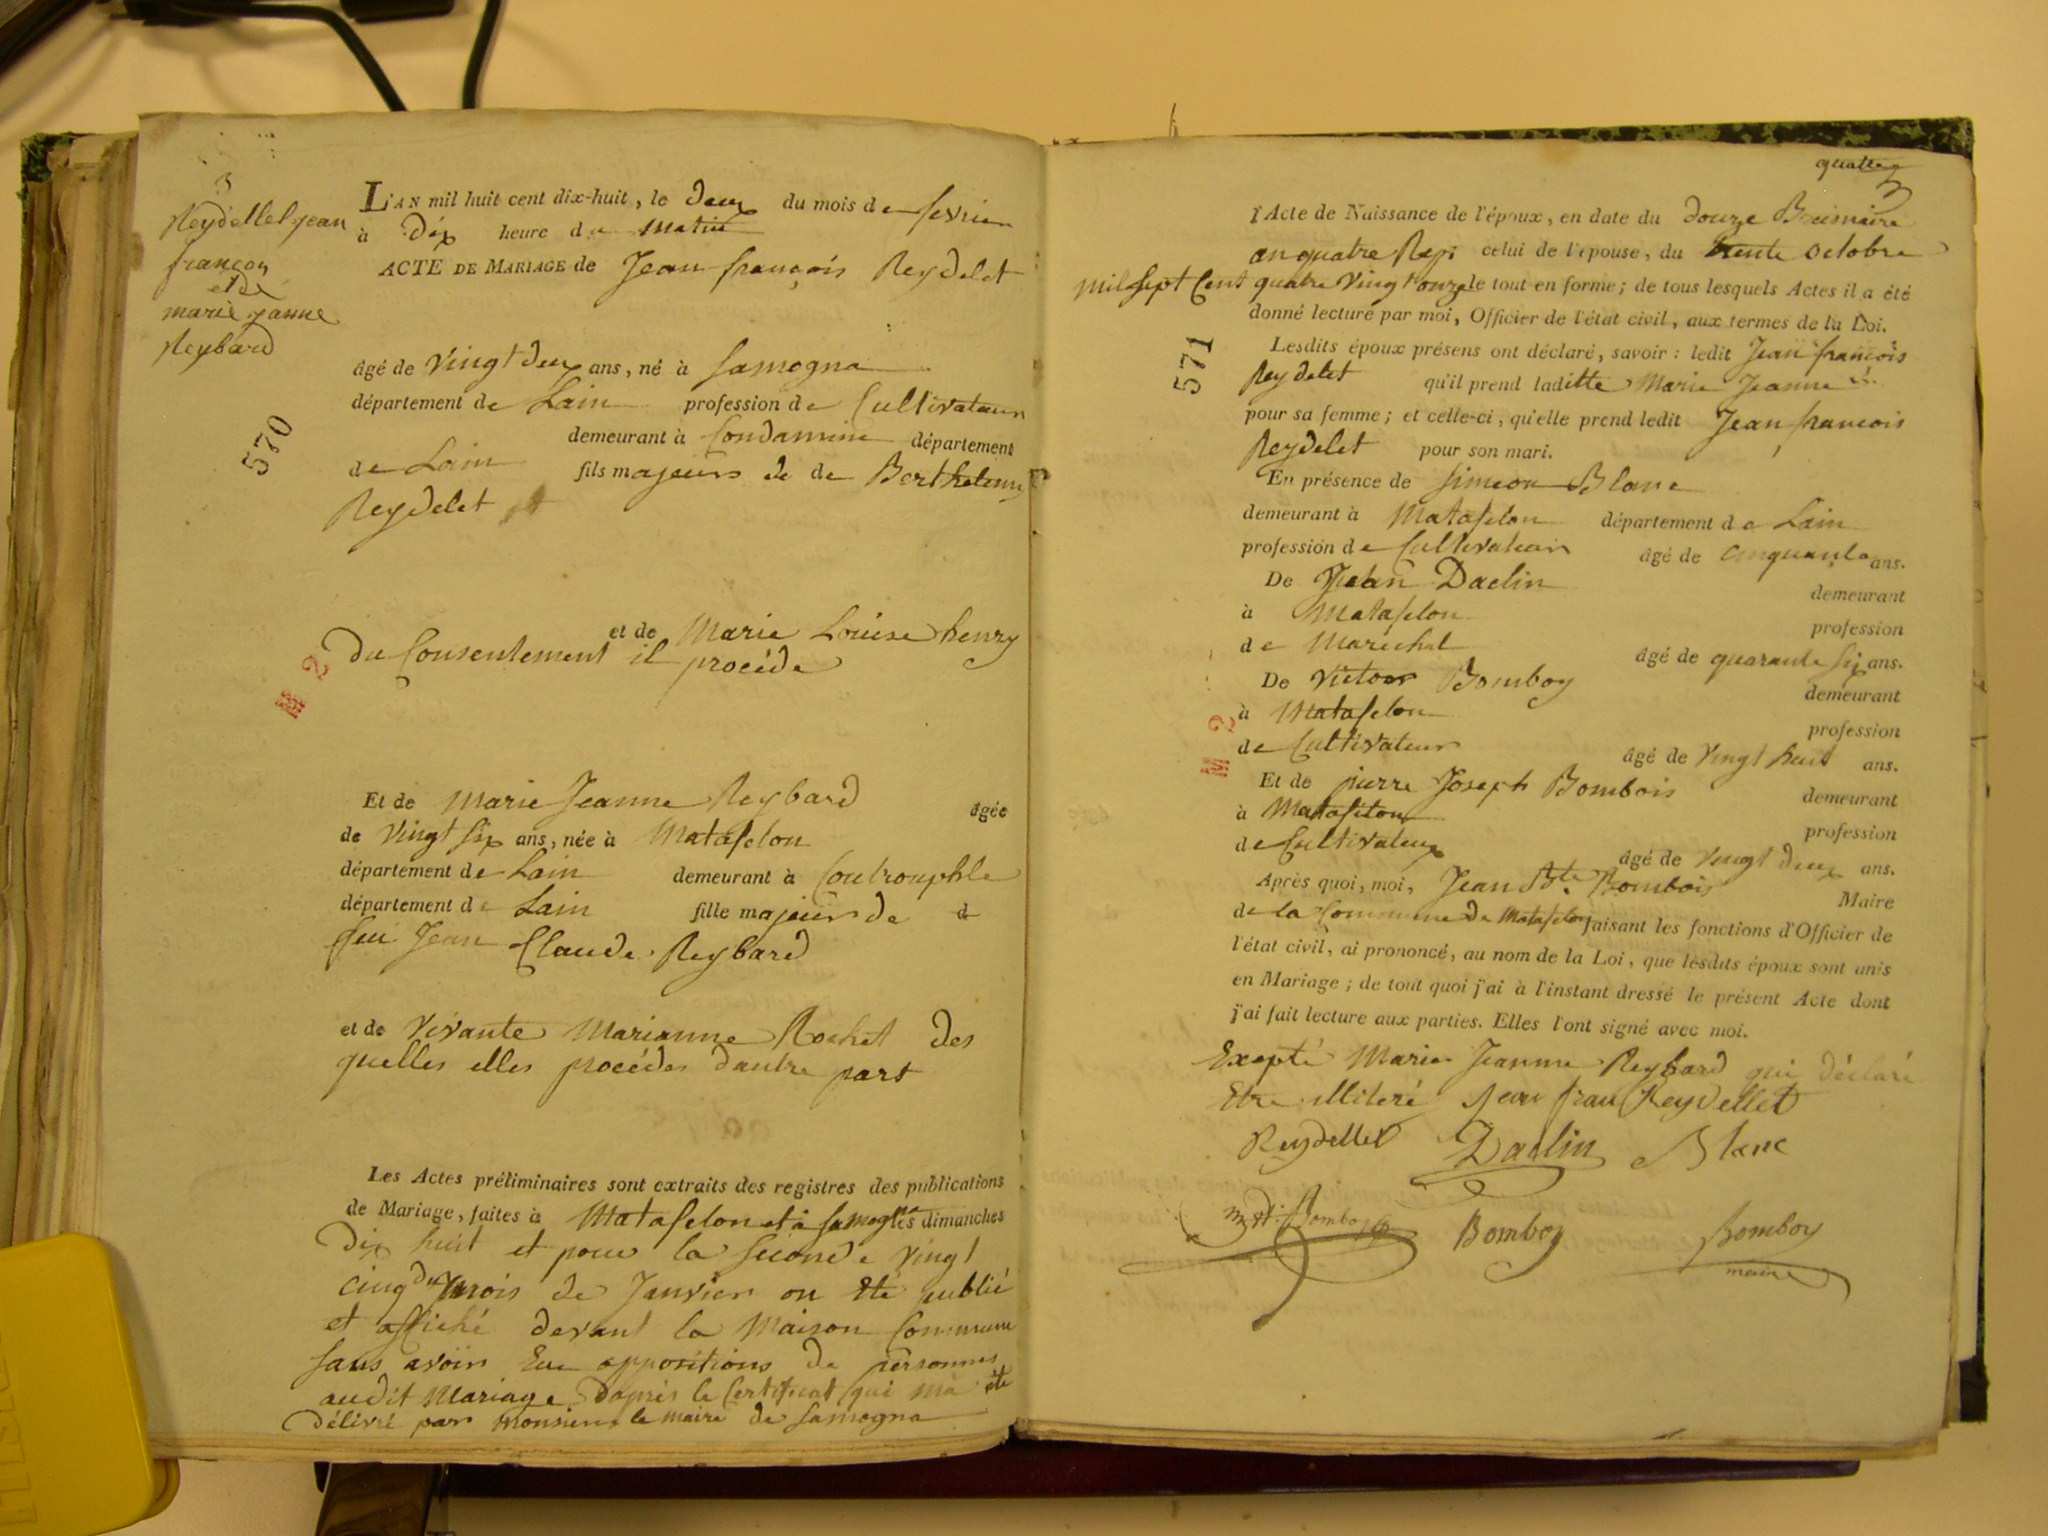 3
Reydellet jean
françoy
et de
marie janne
Reybard
570
M 2
L'AN mil huit cent dix-huit, le deux du mois de fevrier
à Dix heure du matin
ACTE DE MARIAGE de Jean françois Reydelet
âgé de Vingt deux ans, né à Samogna
département de Lain profession de Cultivateur
demeurant à Condamine département
de Lain fils majeurs de de Berthelemy
Reydelet
et de Marie Louise henry
Du Consentement il procéde
Et de Marie Jeanne Reybard âgée
de Vingt six ans, née à Matafelon
département de Lain demeurant à Coutrouphle
département de Lain fille majeur de d
feu Jean Claude Reybard
et de Vivante Marianne Rochet des
quelles elles procédes dautre part
Les Actes préliminaires sont extraits des registres des publications
de Mariage, faites à Matafelon et à Samogna les dimanches
Dix huit et pour la seconde vingt
cinq du mois de Janvier on été publié
et affiché devant la Maison Commune
sans avoir Eue oppositions de personnes
audit Mariage Daprès le Certificat qui ma été
délivré par monsieur le maire de Samogna
quatre
3
l'Acte de Naissance de l'époux, en date du douze Brumaire
an quatre Rep. celui de l'épouse, du trente octobre
mil sept Cent quatre Vingt onze le tout en forme; de tous lesquels Actes il a été
donné lecture par moi, Officier de l'état civil, aux termes de la Loi.
571
Lesdits époux présens ont déclaré, savoir : ledit Jean françois
Reydelet qu'il prend laditte Marie Jeanne
pour sa femme; et celle-ci, qu'elle prend ledit Jean francois
Reydelet pour son mari.
En présence de simeon Blanc
demeurant à Matafelon département de Lain
profession de Cultivateur âgé de cinquante ans.
De Jean Daclin demeurant
à Matafelon profession
de Maréchal âgé de quarante six ans.
De Victor Bomboy demeurant
à Matafelon profession
de Cultivateur âgé de Vingt huit ans.
M 2
Et de pierre Joseph Bombois demeurant
à Matafelon profession
de Cultivateur âgé de Vingt deux ans.
Après quoi, moi, Jean Bte. Bombois Maire
de la Commune de Matafelon faisant les fonctions d'Officier de
l'état civil, ai prononcé, au nom de la Loi, que lesdits époux sont unis
en Mariage; de tout quoi j'ai à l'instant dressé le présent Acte dont
j'ai fait lecture aux parties. Elles l'ont signé avec moi.
Excepté Marie Jeanne Reybard qui déclaré
Etre illiteré Jean fran Reydellet
Reydellet Daclin Blanc
Bomboy Bomboy Bomboy
maire